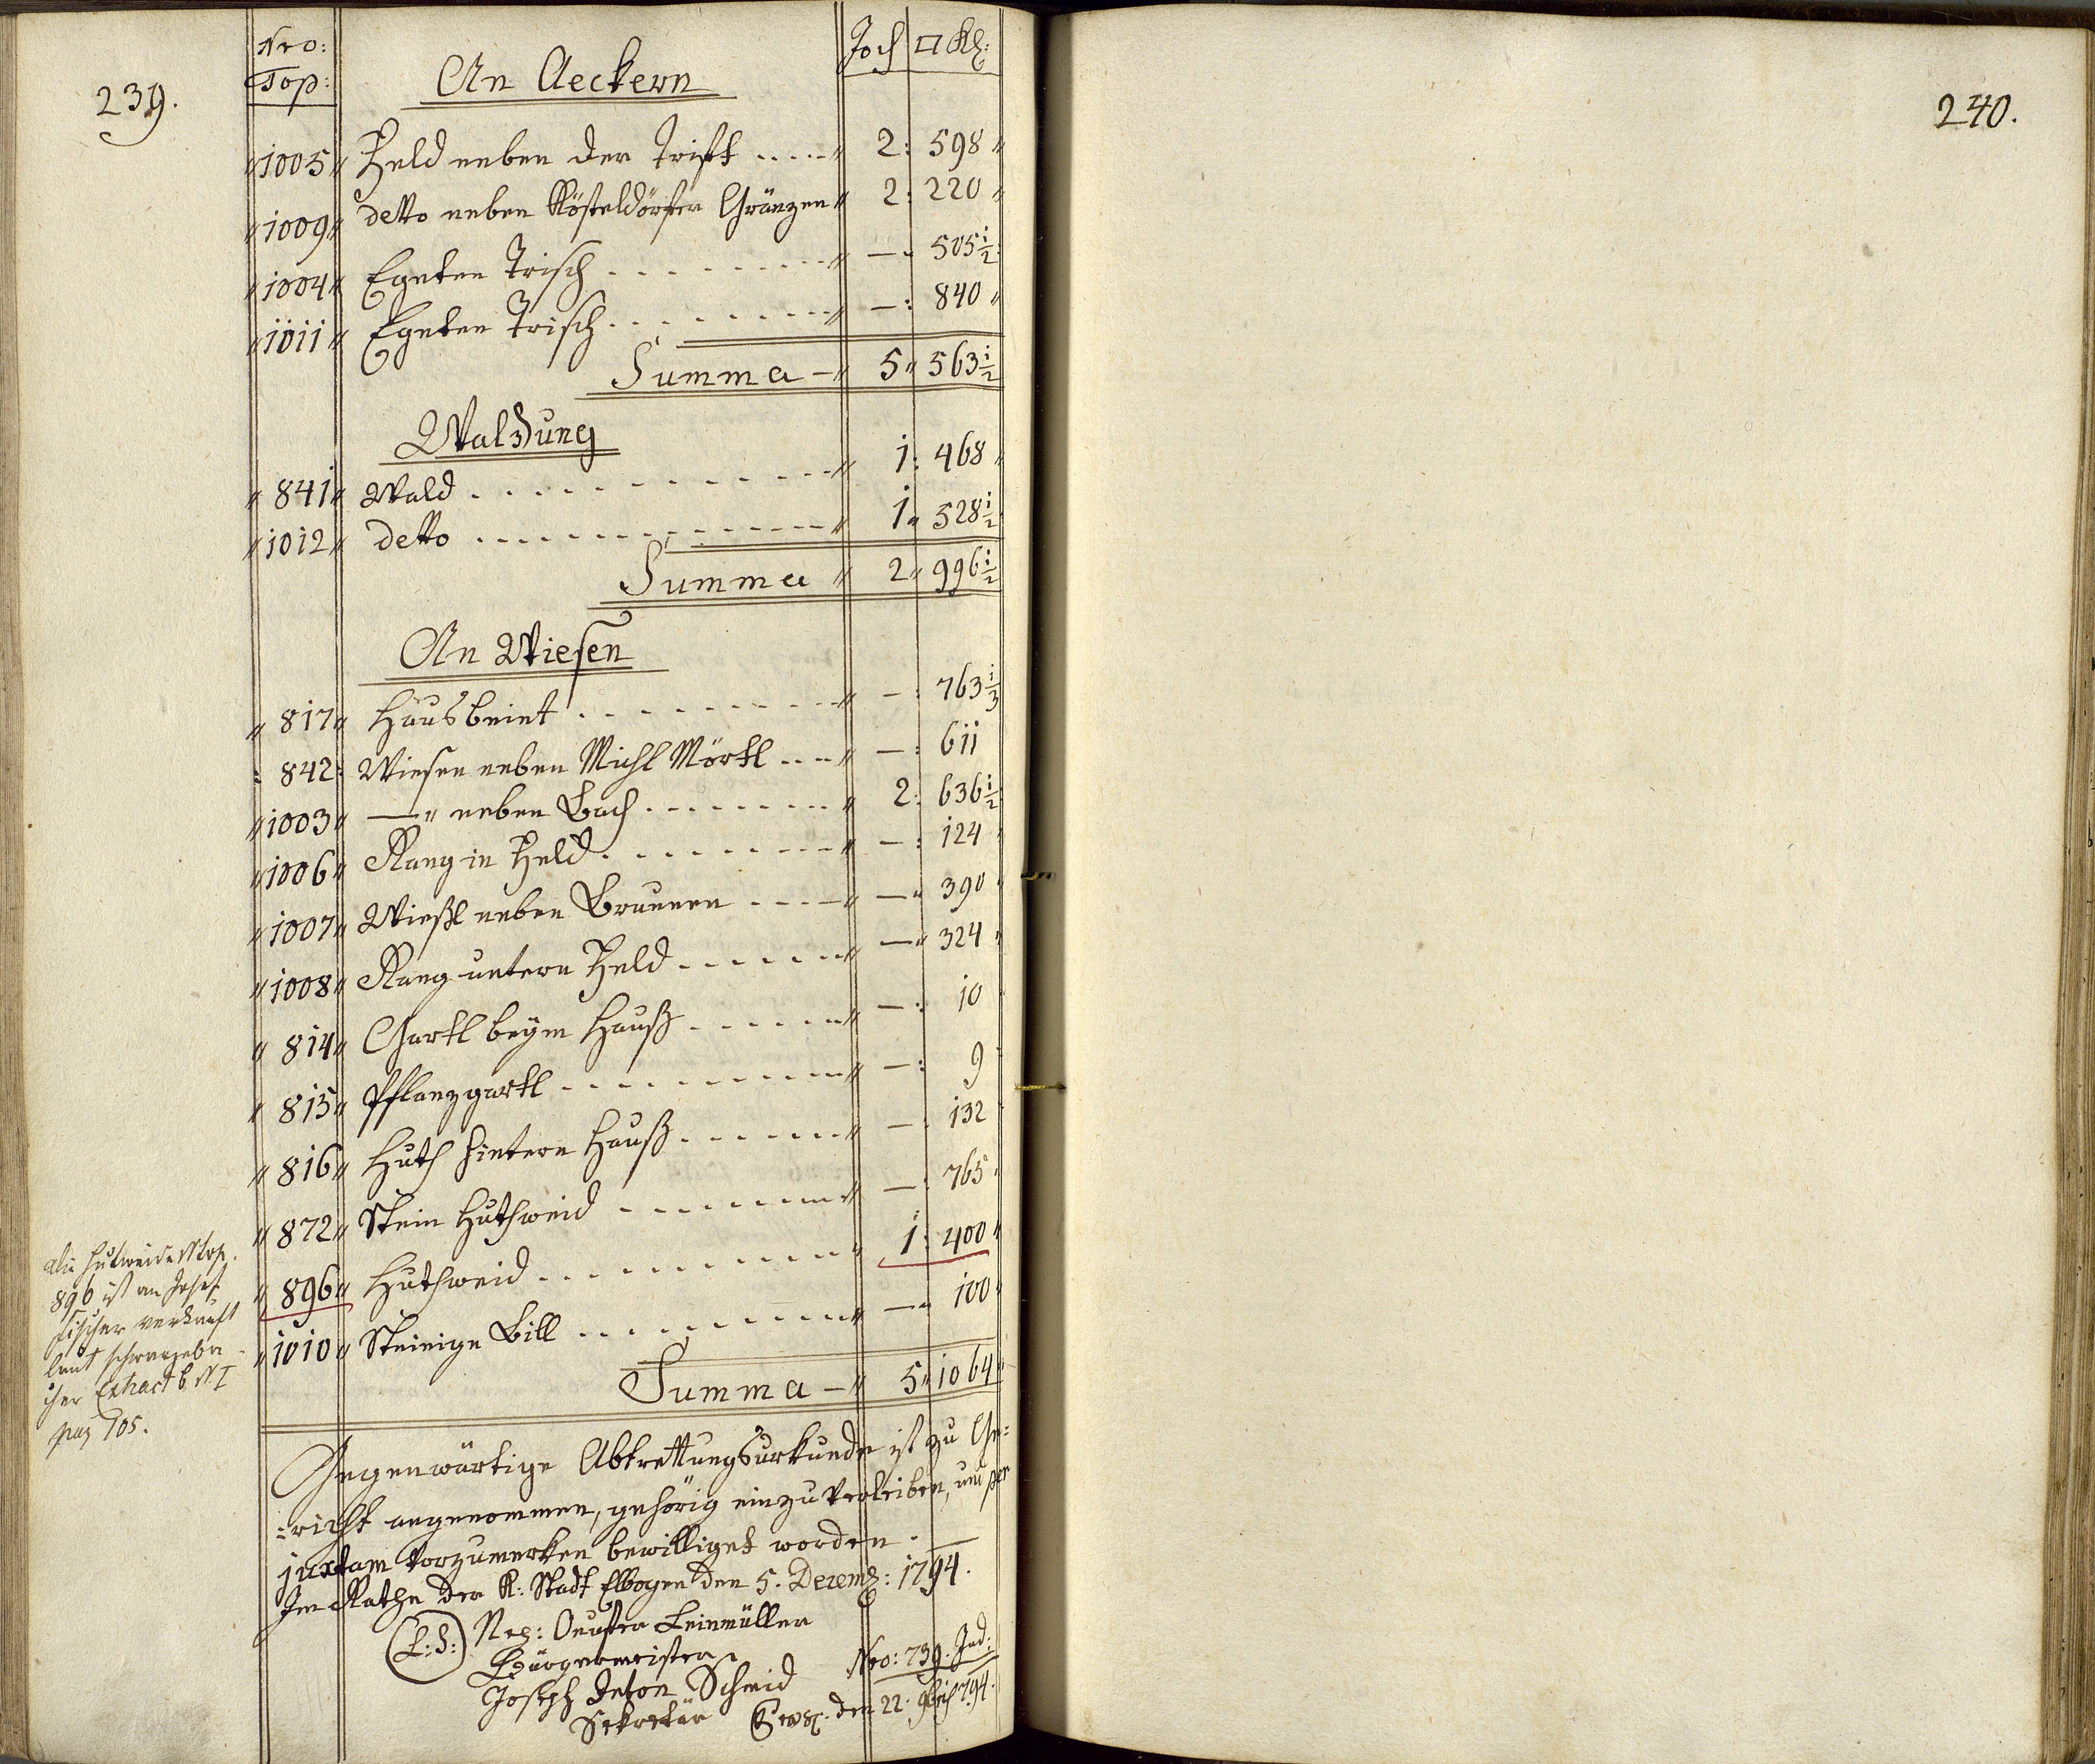 239.
Nro: Top: An Aeckern Joch □ Kl:
1005 Feld neben der Trifft 2: 598
1009 detto neben Kösteldörfer Gränzen 2: 220
1004 Egerten Trisch — 505 1/2
1011 Egerten Trisch —: 840
Summa — 5 563 1/2
Waldung
841 Wald 1: 468
1012 detto 1 528 1/2
Summa 2 996 1/2
An Wiesen
817 Hausbeint —: 763 1/3
842 Wiesen neben Michl Mörtl —: 611
1003 —" neben Bach 2: 636 1/2
1006 Rang in Feld —: 124
1007 Wießl neben Brunnen — 390
1008 Rang untern Feld — 324
814 Gartl beym Hauß —: 10
815 Pflanzgartl —: 9
816 Huth hintern Hauß —: 132
872 Stein Huthweid —: 765
896 Huthweid 1: 400
1010 Steinige Bill — 100
Summa — 5 1064
die Hutweide Ntop.
896 ist an Josef
Fischer verkauft
laut schwarzeba
cher Extract b. N I
pag 105.
Gegenwärtige Abtrettungsurkunde ist zu Ge=
=richt angenommen, gehörig einzuverleiben, und per
juxtam vorzumerken bewilliget worden. —
Im Rathe der K: Stadt Elbogen den 5. Decemb: 1794.
(L:S:) Nep: Leinmüller
Bürgermeister
Joseph Anton Schmid
Sekretär
Nro: 739. Jud:
den 22. 9bris 794.
240.